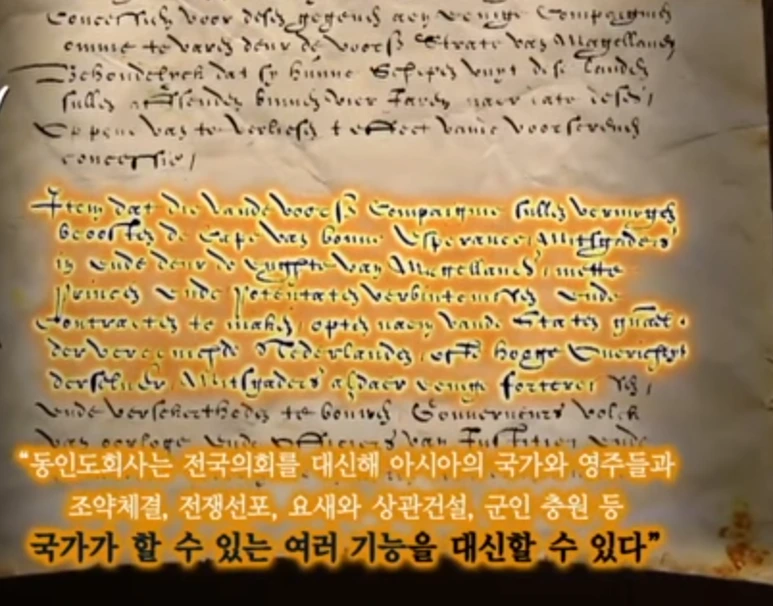 Concessie voor desen gegeven aen eenige Compaignien
omme te varen deur de voors Strate van Magellanes
Behoudelyck dat sy hunne Schepen vuyt dese landen
sullen affsenden binnen vier Jaren naer date deser,
Oppene van te verliesen teffect vande
concessie,
Item dat die vande voors Compaignie sullen vermogen
beoosten de Cape van bonne Esperance, Mitsgaders
in ende deur de engpte van Magellanes, mette
Princen ende Potentaten verbintenissen ende
Contracten te maken, opten naem vande Staten gnael
der vereenigde Nederlanden, ofte hooge Overicheyt
derselver, Mitsgaders aldaer eenige
ende te bouwen Gouverneurs volck
van oorloge ende officiers van Justitien ende
“동인도회사는 전국의회를 대신해 아시아의 국가와 영주들과
조약체결, 전쟁선포, 요새와 상관건설, 군인 충원 등
국가가 할 수 있는 여러 기능을 대신할 수 있다”